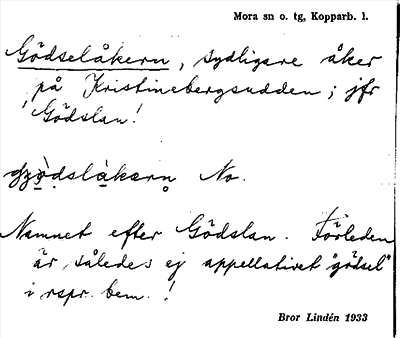 Mora sn o. tg, Kopparb. l.
Gödselåkern, sydligare åker
på Kristinebergsudden; jfr
'Gödslan!
No.
Namnet efter Gödslan. Förleden
är således ej appellativet "gödsel"
i rspr. bem.!
Bror Lindén 1933